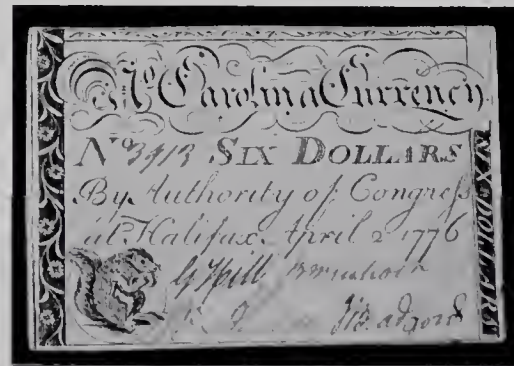 No Carolina Currency
No 3413 SIX DOLLARS
By Authority of Congress
at Halifax April 2 1776
W Hill
SIX DOLLARS